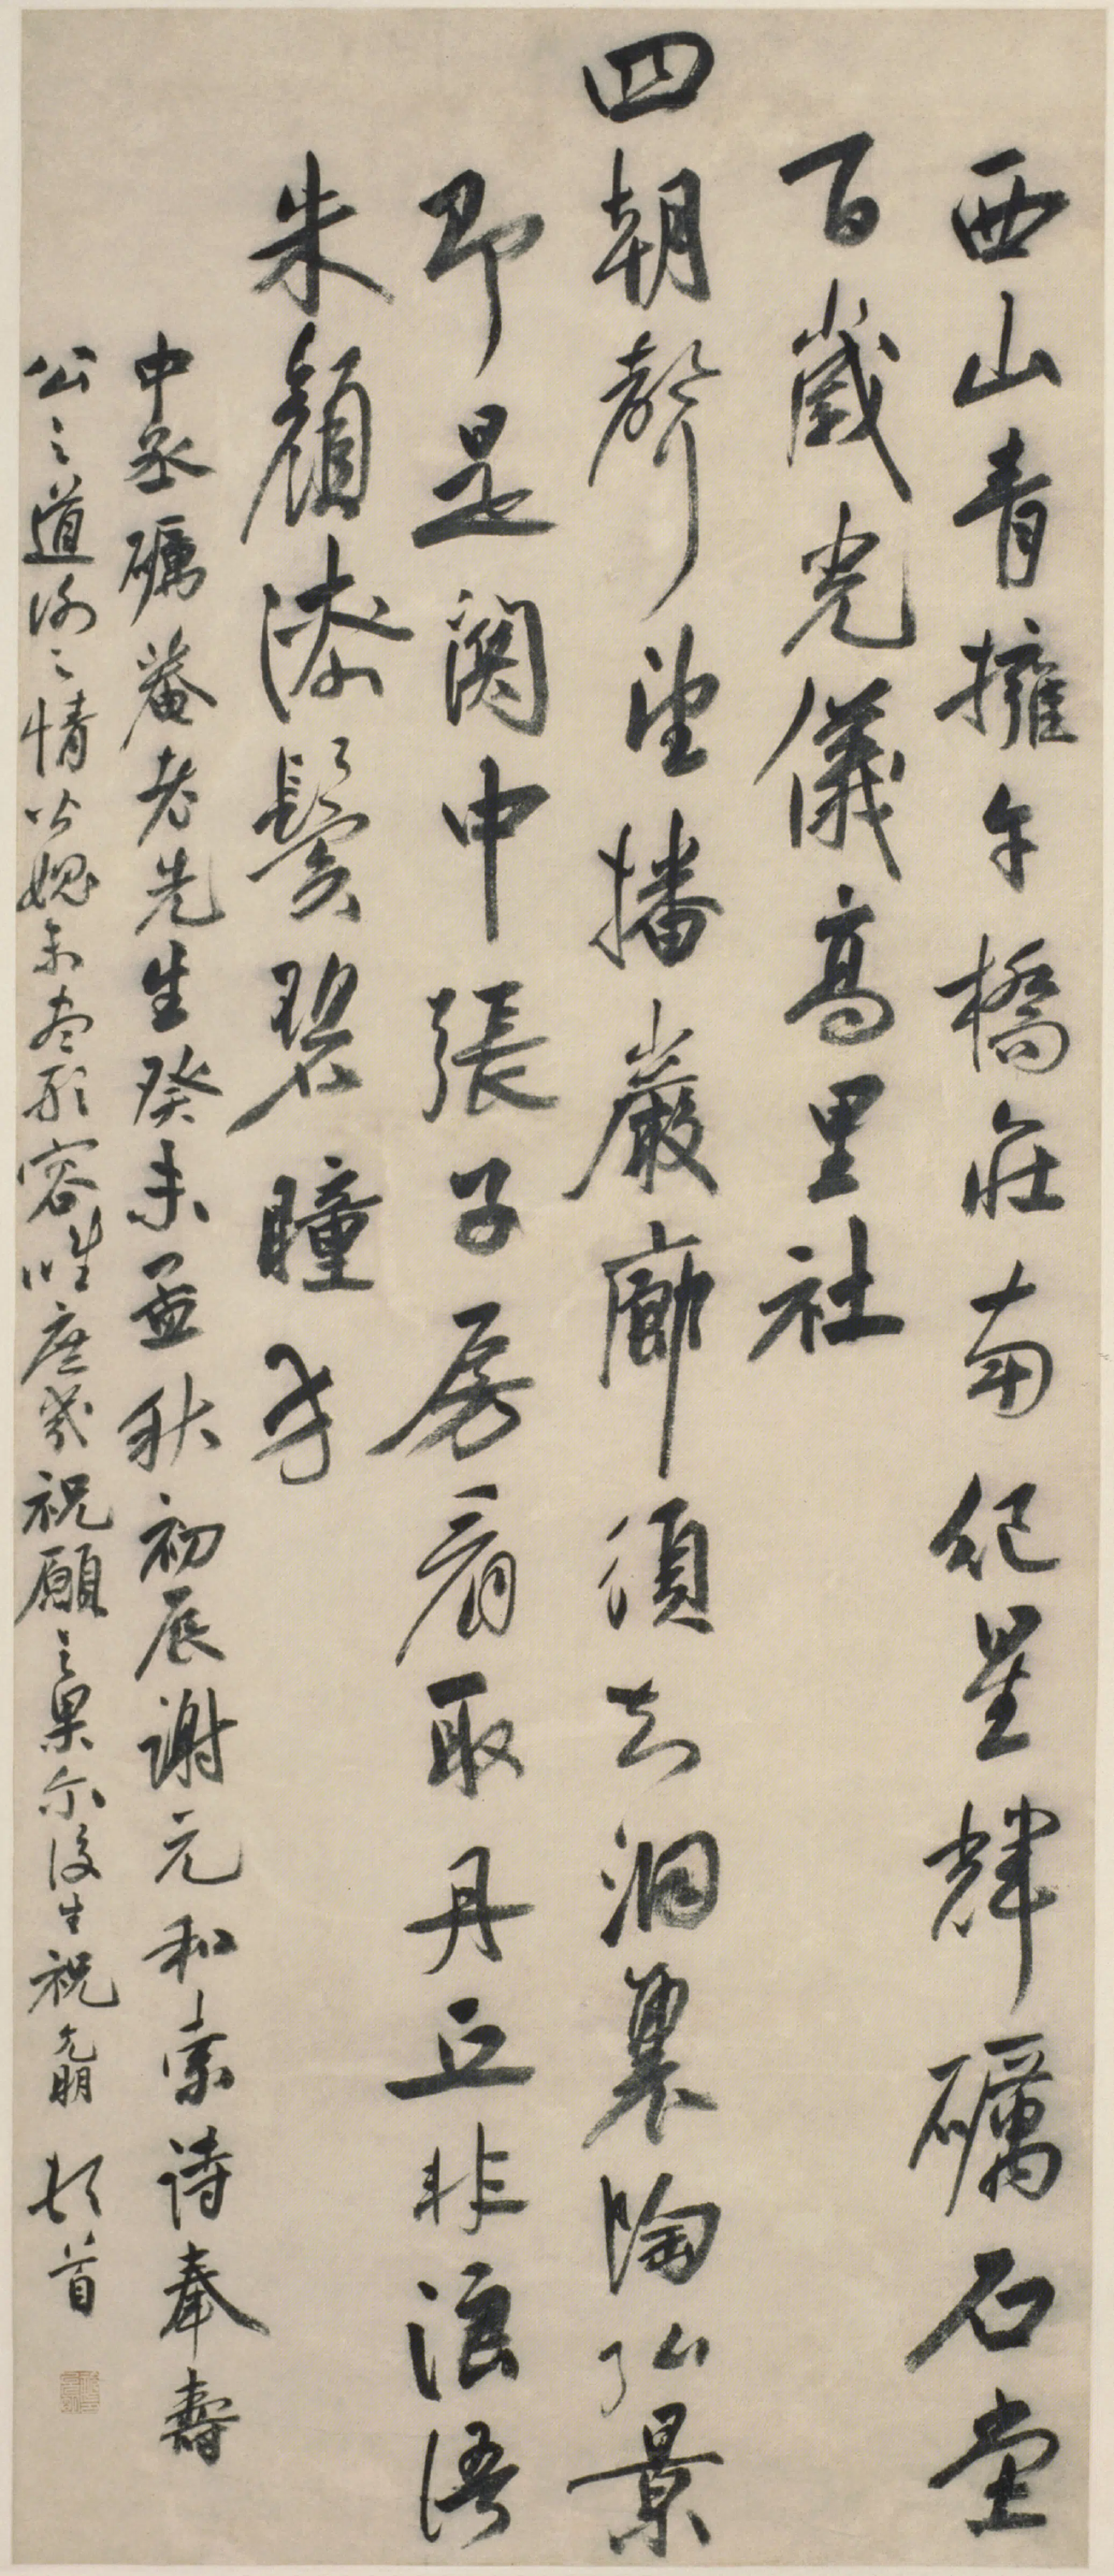 西山青擁午橋莊南紀星輝礪石堂
百歲光儀高里社
四朝聲望播巖廊須知洞裏陶弘景
即是關中張子房看取丹丘非浪語
朱顏漆鬢碧瞳方
中丞礪菴老先生癸未孟秋初辰謝元和索詩奉壽
公之道渝之情皆媿未盡形容唯庶幾祝願之果尔後生祝允明頓首